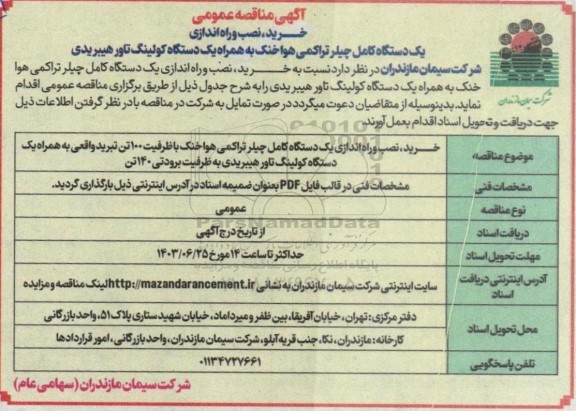 آگهی مناقصه عمومی
خـــرید، نصب و راه اندازی
یک دستگاه کامل چیلر تراکمی هوا خنک به همراه یک دستگاه کولینگ تاور هیبریدی
شرکت سیمان مازندران
شرکت سیمان مازندران در نظر دارد نسبت به خـــرید، نصب و راه اندازی یک دستگاه کامل چیلر تراکمی هوا
خنک به همراه یک دستگاه کولینگ تاور هیبریدی را به شرح جدول ذیل از طریق برگزاری مناقصه عمومی اقدام
نماید. بدینوسیله از متقاضیان دعوت میگردد در صورت تمایل به شرکت در مناقصه با در نظر گرفتن اطلاعات ذیل
جهت دریافت و تحویل اسناد اقدام بعمل آورند.
موضوع مناقصه
خـــرید، نصب و راه اندازی یک دستگاه کامل چیلر تراکمی هوا خنک با ظرفیت ۱۰۰ تن تبرید واقعی به همراه یک
دستگاه کولینگ تاور هیبریدی به ظرفیت برودتی ۱۴۰ تن
مشخصات فنی
مشخصات فنی در قالب فایل PDF بعنوان ضمیمه اسناد در آدرس اینترنتی ذیل بارگذاری گردید.
نوع مناقصه
عمومی
دریافت اسناد
از تاریخ درج آگهی
مهلت تحویل اسناد
حداکثر تا ساعت ۱۴ مورخ ۱۴۰۳/۰۶/۲۵
آدرس اینترنتی دریافت
اسناد
سایت اینترنتی شرکت سیمان مازندران به نشانی http://mazandarancement.ir لینک مناقصه و مزایده
محل تحویل اسناد
دفتر مرکزی: تهران، خیابان آفریقا، بین ظفر و میرداماد، خیابان شهید ستاری پلاک ۵۱، واحد بازرگانی
کارخانه: مازندران، نکا، جنب قریه آبلو، شرکت سیمان مازندران، واحد بازرگانی، امور قراردادها
تلفن پاسخگویی
۰۱۱۳۴۷۲۷۶۶۱
شرکت سیمان مازندران (سهامی عام)
ParsNamadData